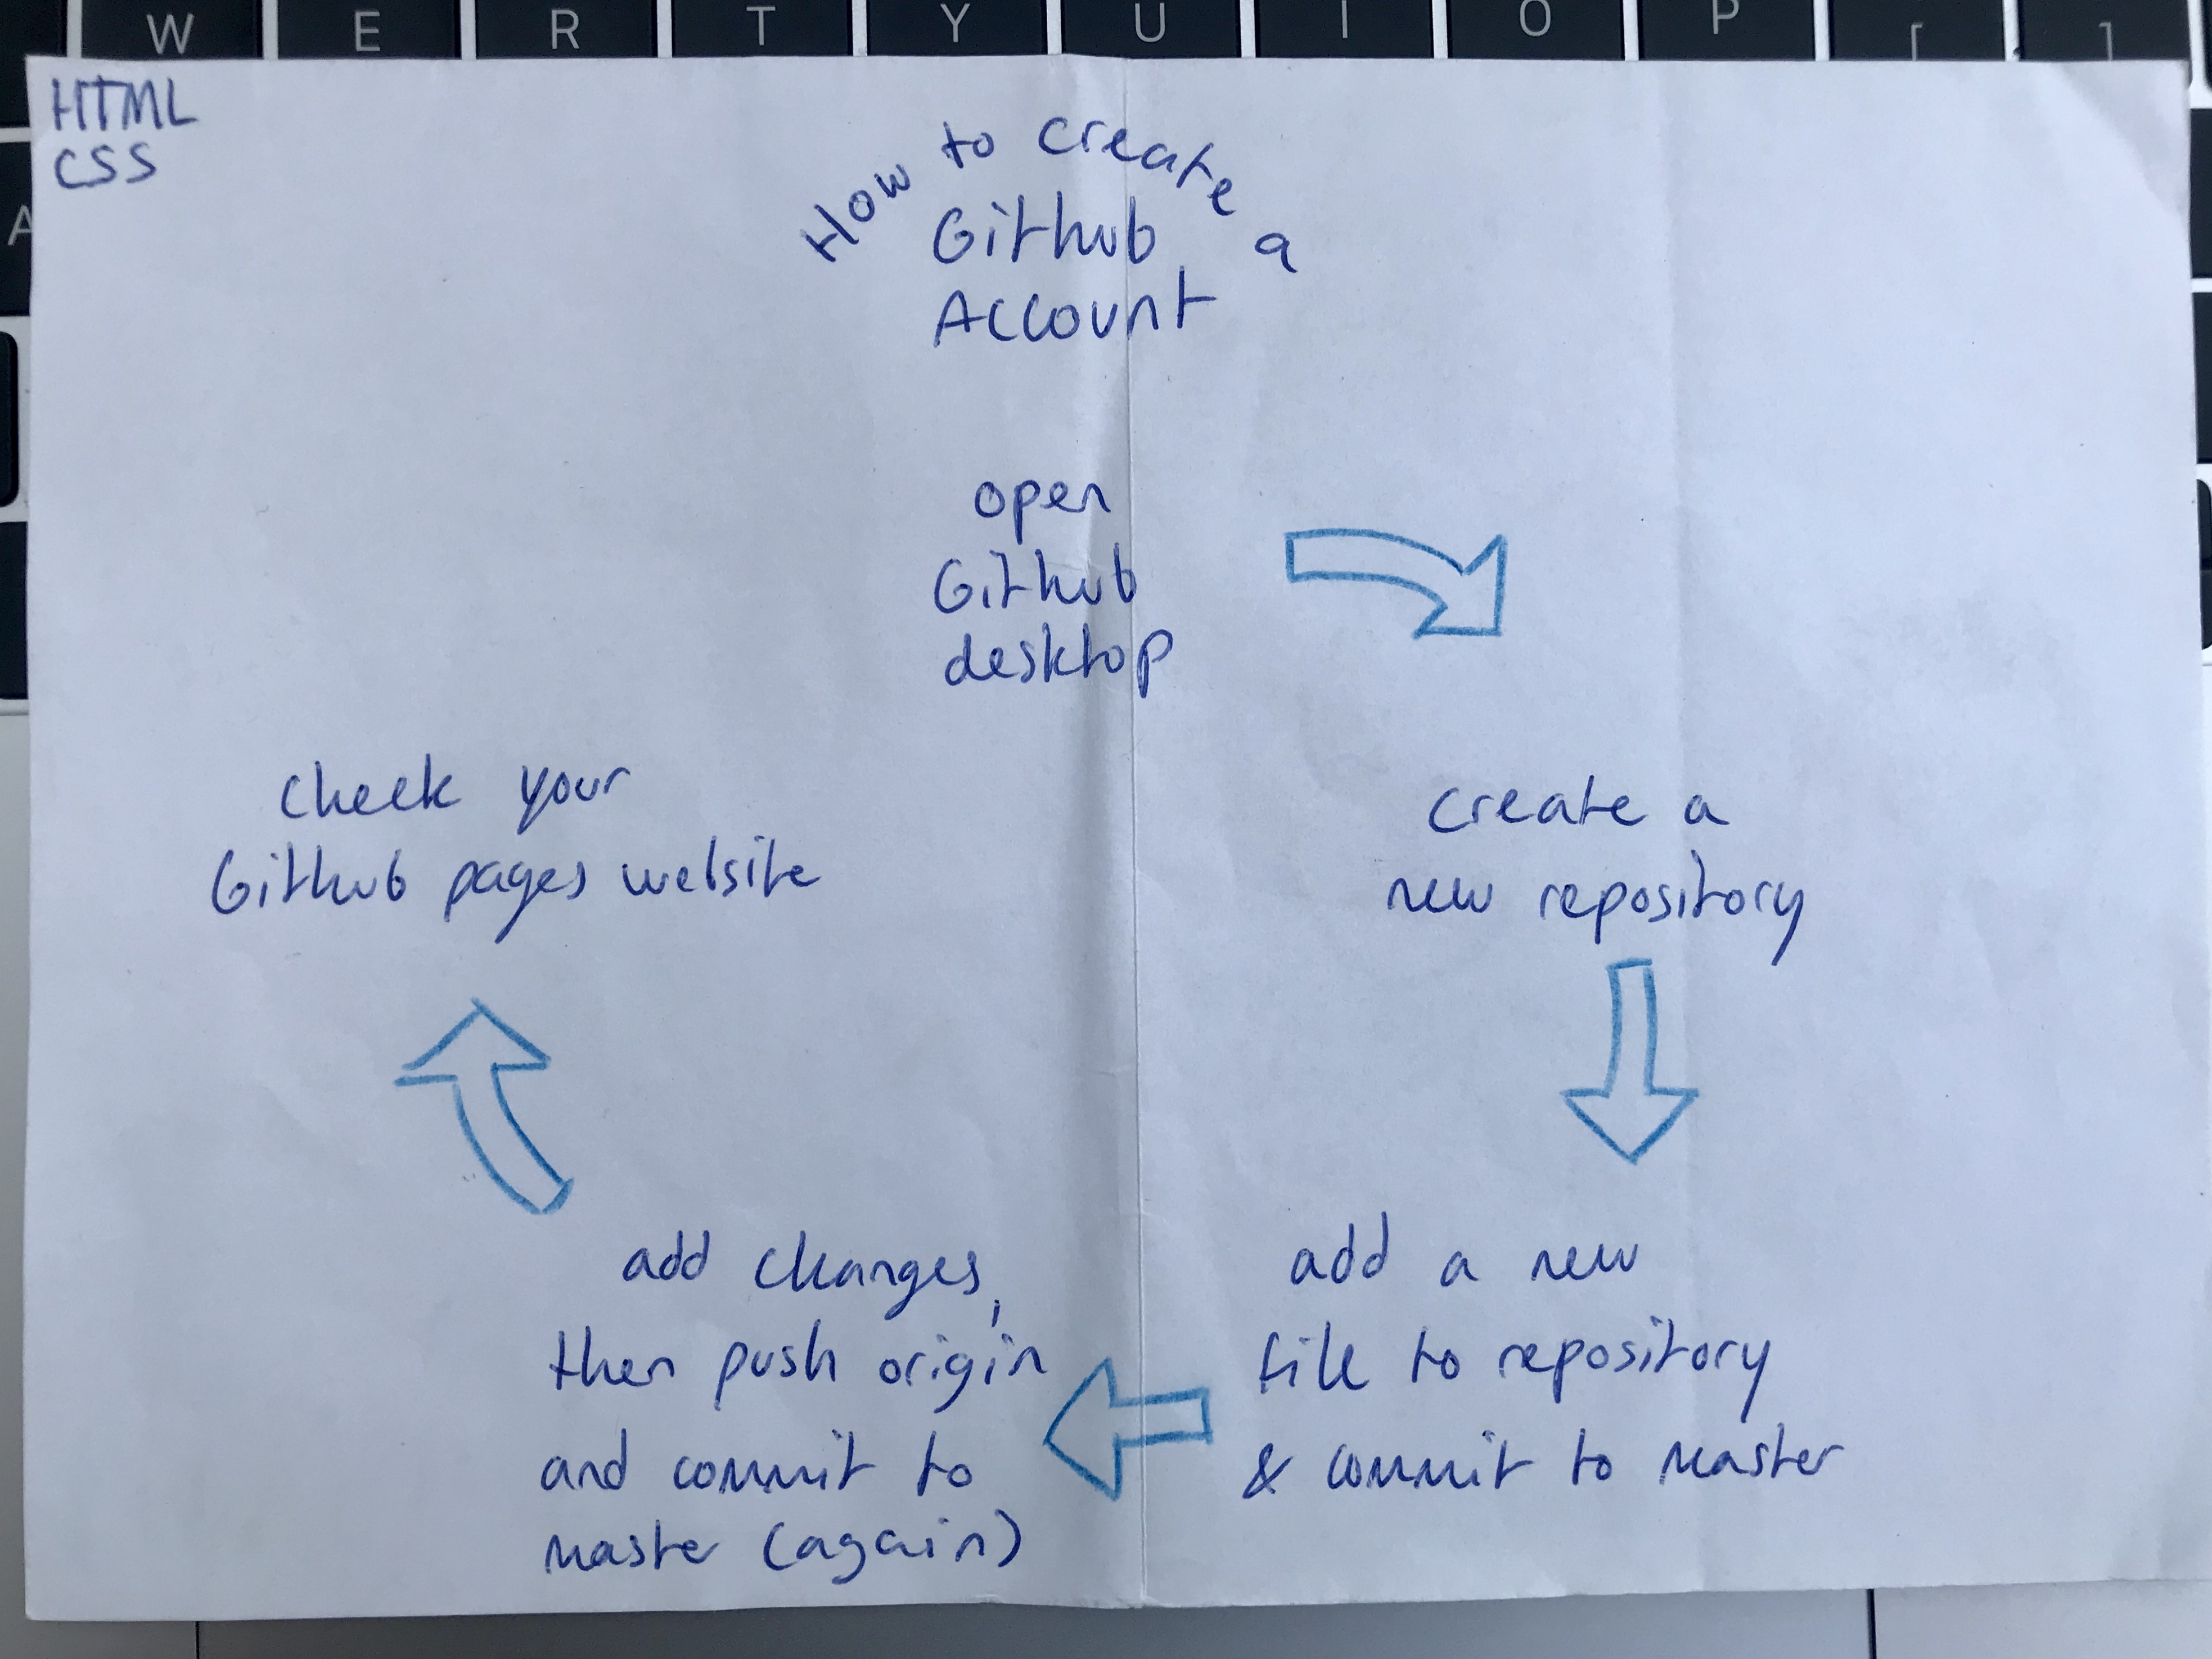 W E R T Y U I O P [ ]
A
HTML
CSS
How to create a
Github
Account
open
Github
desktop
create a
new repository
add a new
file to repository
& commit to master
add changes,
then push origin
and commit to
master (again)
check your
Github pages website